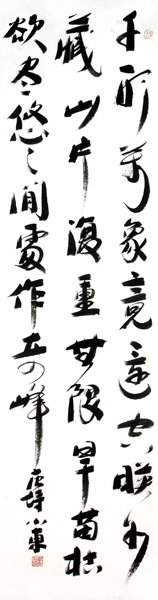 千形萬象竟還空映水
藏山片復重無限旱苗枯
欲尽悠々閒處作奇峰 唐詩